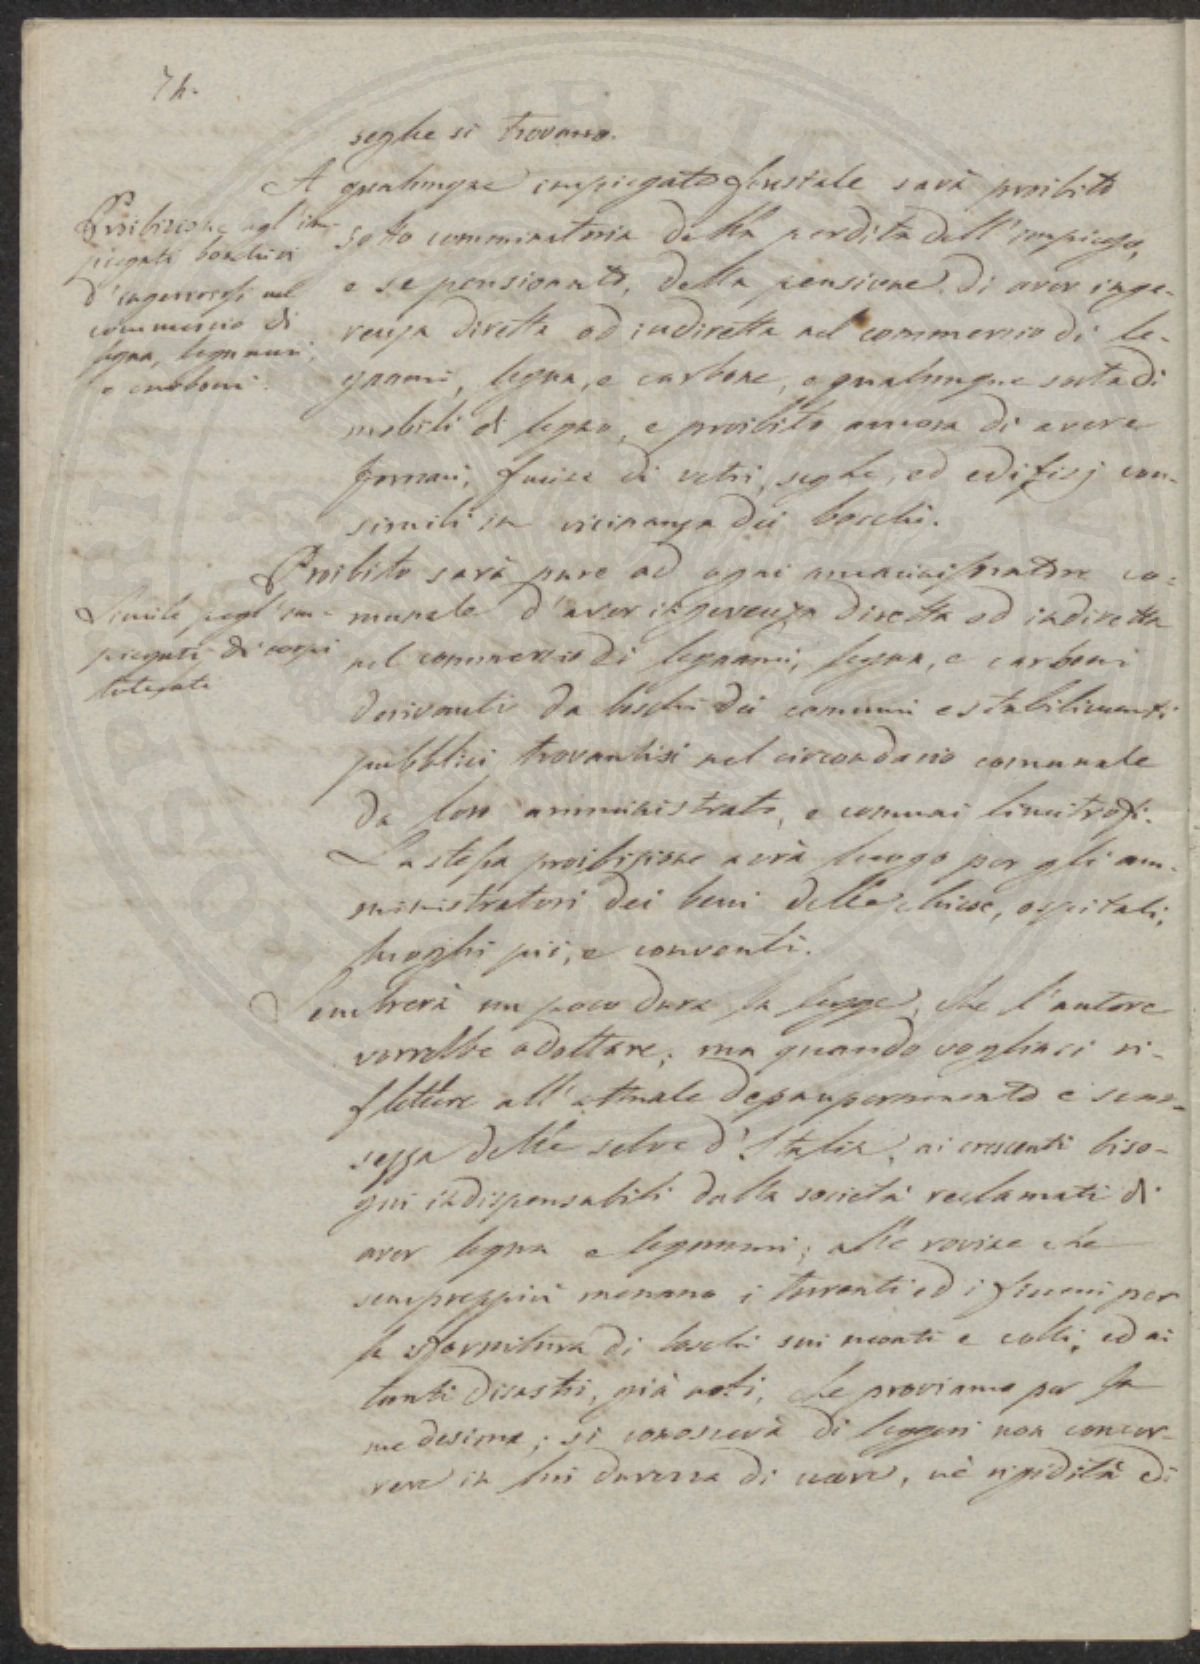 74.
seghe si trovano.
A qualunque impiegato forestale sarà proibito
sotto comminatoria della perdita dell'impiego,
e se pensionato, della pensione, di aver inge-
renza diretta od indiretta nel commercio di le-
gnami, legna, e carbone, o qualunque sorta di
mobili di legno, e proibito ancora di avere
fornaci, fucine di vetri, seghe, ed edifizj con-
simili in vicinanza dei boschi.
Proibizione agl'im-
piegati boschivi
d'ingerirsi nel
commercio di
legna, legnami,
e carboni.
Proibito sarà pure ad ogni amministratore co-
munale d'aver ingerenza diretta od indiretta
nel commercio di legnami, legna, e carboni
derivanti da boschi dei comuni e stabilimenti
pubblici trovantisi nel circondario comunale
da loro amministrato, e comuni limitrofi.
Simile pegl'im-
piegati di corpi
tutelati
La stessa proibizione avrà luogo per gli am-
ministratori dei beni delle chiese, ospitali,
luoghi pii, e conventi.
Sembrerà un poco dura la legge, che l'autore
vorrebbe adottare; ma quando vogliasi ri-
flettere all'attuale depauperamento e scar-
sezza delle selve d'Italia, ai crescenti biso-
gni indispensabili dalla società reclamati di
aver legna e legnami; alle rovine che
semprepiù menano i torrenti ed i fiumi per
la sfornitura di boschi sui monti e colli, ed ai
tanti disastri, già noti, che proviamo per la
medesima; si conoscerà di leggeri non concor-
rere in lui durezza di cuore, nè rigidità di